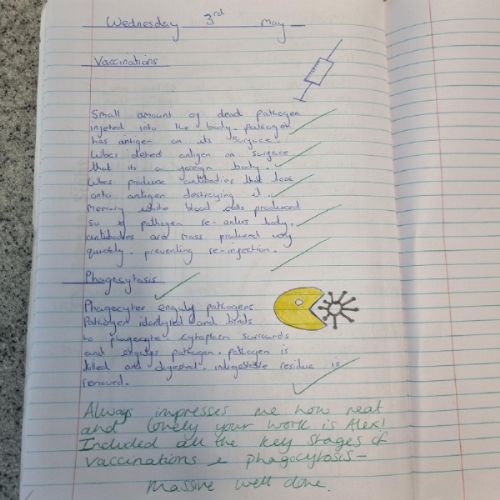 Wednesday 3rd May
Vaccinations
Small amount of dead pathogen
injeted into the body. pathogen
has antigen on its surface.
Wbcs detect antigen on surface
that its a foreign body.
Wbcs produce antibodies that lock
onto antigen destroying it.
Memory white blood cells produced
so if pathogen re-enters body,
antibodies are mass produced very
quickly. preventing re-injection.
Phagocytosis
Phagocytes engulf pathogens
Pathogen identified and binds
to phagocyte cytoplasm surrounds
and engulfs pathogen. pathogen is
killed and digested. indigestable residue is
removed.
Always impresses me how neat
and lovely your work is Alex!
Included all the key stages of
vaccinations & phagocytosis -
massive well done.